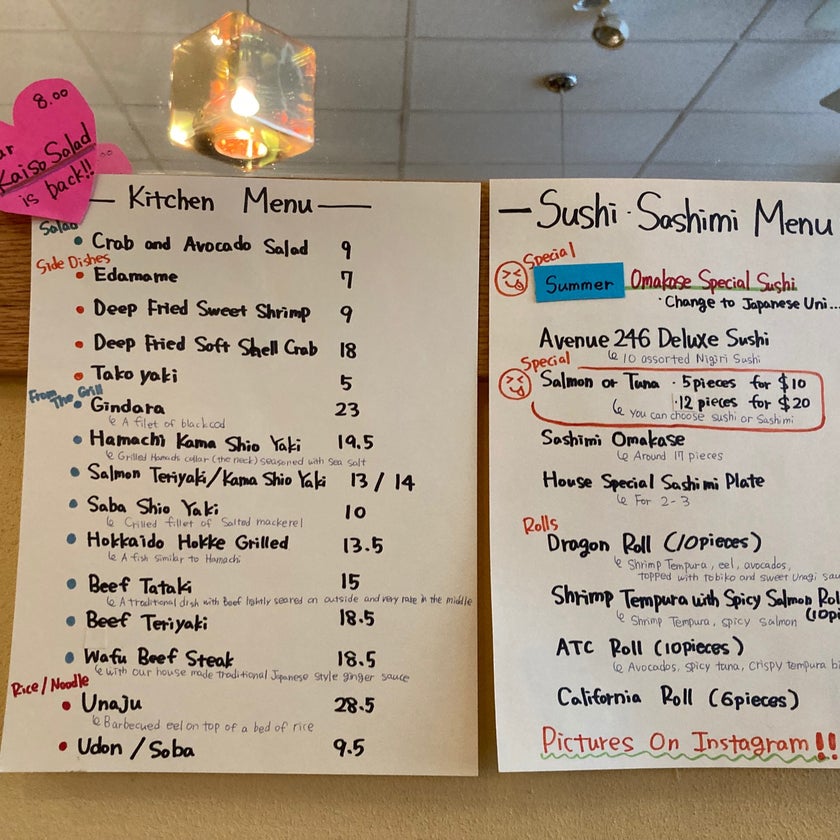 8.00
Kaiso Salad
is back!!
Kitchen Menu
Salad
Crab and Avocado Salad 9
Side Dishes
Edamame 7
Deep Fried Sweet Shrimp 9
Deep Fried Soft Shell Crab 18
Tako yaki 5
From The Grill
Gindara 23
A filet of blackcod
Hamachi Kama Shio Yaki 19.5
Grilled Hamachi collar (the neck) seasoned with sea salt
Salmon Teriyaki/Kama Shio Yaki 13 / 14
Saba Shio Yaki 10
Grilled fillet of Salted mackerel
Hokkaido Hokke Grilled 13.5
A fish similar to Hamachi
Beef Tataki 15
A traditional dish with Beef lightly seared on outside and very rare in the middle
Beef Teriyaki 18.5
Wafu Beef Steak 18.5
with our house made traditional Japanese style ginger sauce
Rice/Noodle
Unaju 28.5
Barbecued eel on top of a bed of rice
Udon / Soba 9.5
Sushi · Sashimi Menu
Special
Summer Omakase Special Sushi
· Change to Japanese Uni...
Avenue 246 Deluxe Sushi
10 assorted Nigiri Sushi
Special
Salmon or Tuna · 5 pieces for $10
· 12 pieces for $20
you can choose sushi or Sashimi
Sashimi Omakase
Around 17 pieces
House Special Sashimi Plate
For 2-3
Rolls
Dragon Roll (10pieces)
Shrimp Tempura, eel, avocados,
topped with tobiko and sweet Unagi sau
Shrimp Tempura with Spicy Salmon Rol
(10pi
Shrimp Tempura, spicy salmon
ATC Roll (10pieces)
Avocados, spicy tuna, Crispy tempura bi
California Roll (6pieces)
Pictures On Instagram!!